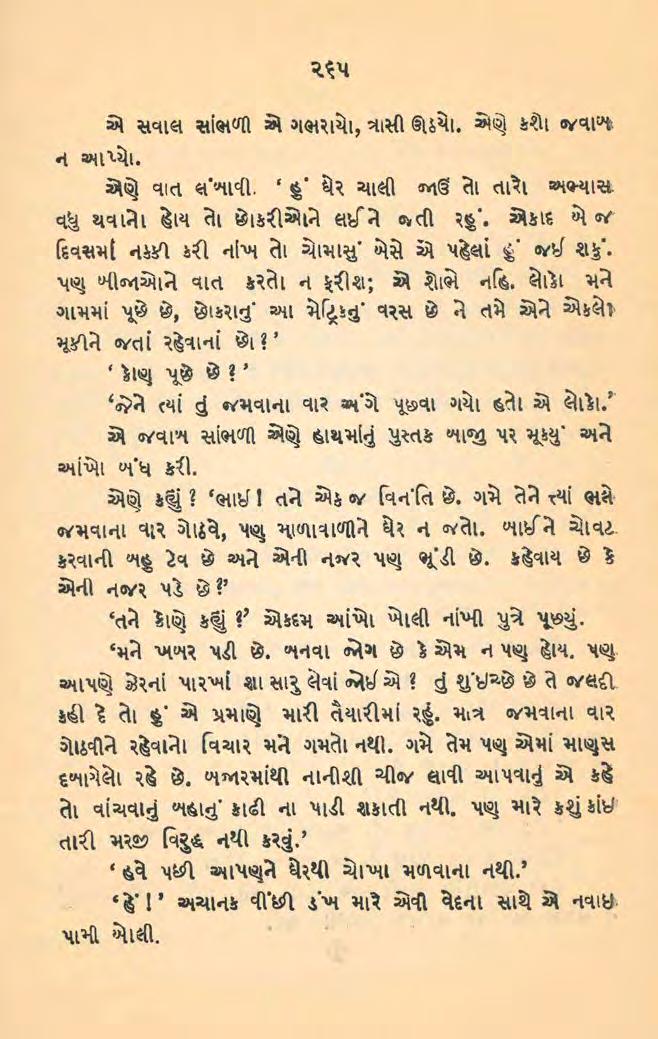 ૨૬૫
એ સવાલ સાંભળી એ ગભરાયો, ત્રાસી ઊઠયો. એણે કશો જવાબ
ન આપ્યો.
એણે વાત લંબાવી. ‘ હું ઘેર ચાલી જાઉં તો તારો અભ્યાસ
વધુ થવાનો હોય તો છોકરીઓને લઈને જતી રહું. એકાદ બે જ
દિવસમાં નક્કી કરી નાંખ તો ચોમાસું બેસે એ પહેલાં હું જઈ શકું.
પણ બીજાઓને વાત કરતો ન ફરીશ; એ શોભે નહિ. લોકો મને
ગામમાં પૂછે છે, છોકરાનું આ મેટ્રિકનું વરસ છે ને તમે એને એકલો
મૂકીને જતાં રહેવાનાં છો ? ’
‘ કોણ પૂછે છે ? ’
‘જેને ત્યાં તું જમવાના વાર અંગે પૂછવા ગયો હતો એ લોકો.’
એ જવાબ સાંભળી એણે હાથમાંનું પુસ્તક બાજુ પર મૂક્યું અને
આંખો બંધ કરી.
એણે કહ્યું ? ‘ભાઈ ! તને એક જ વિનંતિ છે. ગમે તેને ત્યાં ભલે
જમવાના વાર ગોઠવે, પણ માળાવાળીને ઘેર ન જતો. બાઈને ચોવટ
કરવાની બહુ ટેવ છે અને એની નજર પણ ભૂંડી છે. કહેવાય છે કે
એની નજર પડે છે ?’
‘તને કોણે કહ્યું ?’ એકદમ આંખો ખોલી નાંખી પુત્રે પૂછ્યું.
‘મને ખબર પડી છે. બનવા જોગ છે કે એમ ન પણ હોય. પણ
આપણે ઝેરનાં પારખાં શા સારુ લેવાં જોઈએ ? તું શું ઇચ્છે છે તે જલદી
કહી દે તો હું એ પ્રમાણે મારી તૈયારીમાં રહું. માત્ર જમવાના વાર
ગોઠવીને રહેવાનો વિચાર મને ગમતો નથી. ગમે તેમ પણ એમાં માણસ
દબાગેલો રહે છે. બજારમાંથી નાનીશી ચીજ લાવી આપવાનું એ કહે
તો વાંચવાનું બહાનું કાઢી ના પાડી શકાતી નથી. પણ મારે કશું કાંઈ
તારી મરજી વિરુદ્ધ નથી કરવું.’
‘ હવે પછી આપણને ઘેરથી ચોખા મળવાના નથી.’
‘હેં ! ’ અચાનક વીંછી ડંખ મારે એવી વેદના સાથે એ નવાઈ
પામી બોલી.